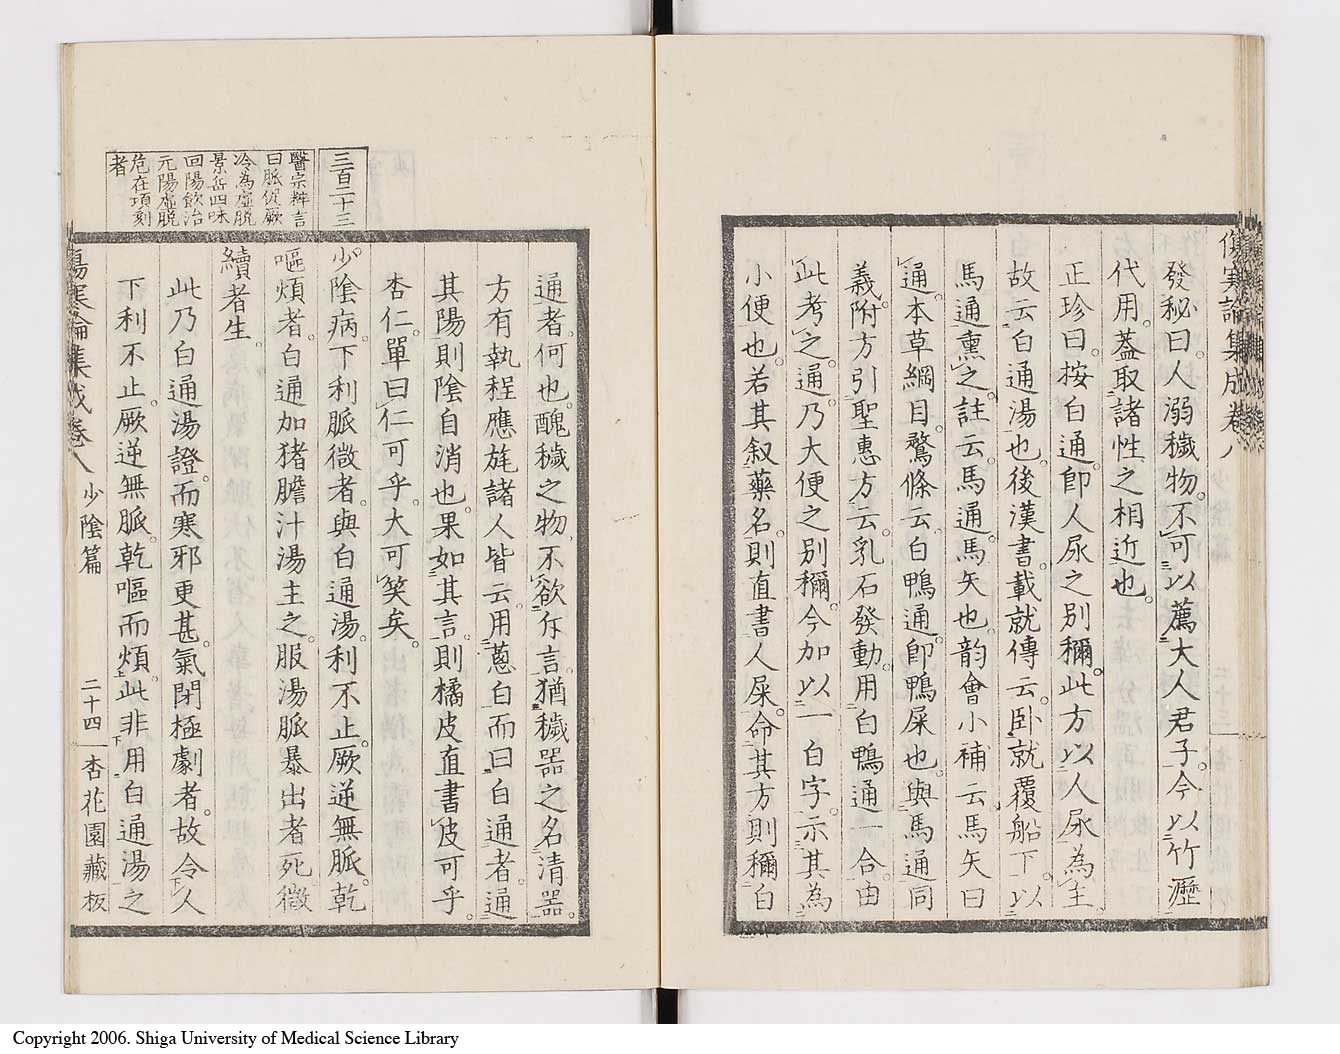 傷寒論集成卷八
發秘曰人溺穢物不可以薦大人君子今以竹瀝
代用蓋取諸性之相近也
正珍曰按白通卽人尿之別稱此方以人尿為主
故云白通湯也後漢書載就傳云臥就覆船下以
馬通薰之註云馬通馬矢也韵會小補云馬矢曰
通本草綱目鶩條云白鴨通卽鴨屎也與馬通同
義附方引聖惠方云乳石發動用白鴨通一合由
此考之通乃大便之別稱今加以一白字示其為
小便也若其叙藥名則直書人屎命其方則稱白
通者何也醜穢之物不欲斥言猶穢器之名清器
方有執程應旄諸人皆云用蔥白而曰白通者通
其陽則陰自消也果如其言則橘皮直書皮可乎
杏仁單曰仁可乎大可笑矣
三百二十三
少陰病下利脈微者與白通湯利不止厥逆無脈乾
嘔煩者白通加猪膽汁湯主之服湯脈暴出者死微
續者生
醫宗辨言
曰脈促厥
冷為虛脫
景岳四味
回陽飲治
元陽虛脫
危在項刻
者
此乃白通湯證而寒邪更甚氣閉極劇者故令人
下利不止厥逆無脈乾嘔而煩此非用白通湯之
傷寒論集成卷八 少陰篇 二十四 杏花園藏板
Copyright 2006. Shiga University of Medical Science Library